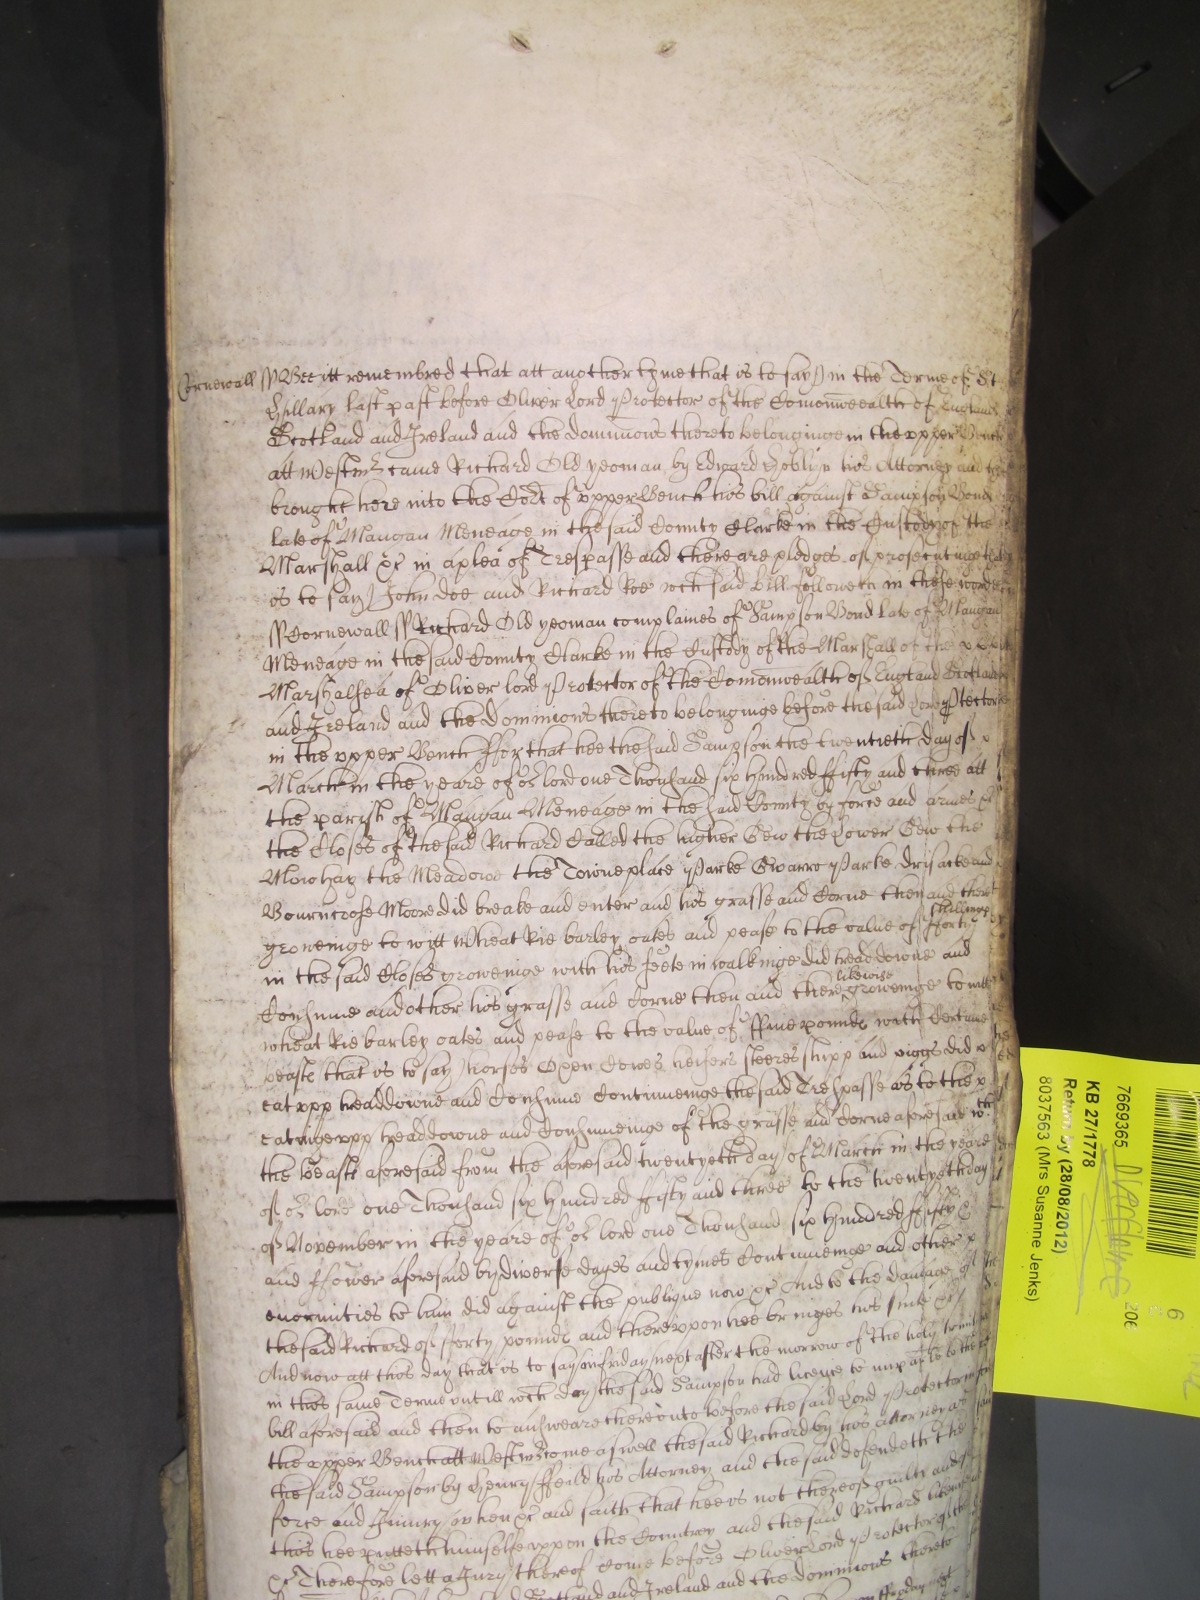 Cornewall ss Bee itt remembred that att another tyme that is to say in the Terme of St
Hillary last past before Oliver Lord Protector of the Comonwealth of England
Scotland and Ireland and the dominions thereto belonginge in the upper Bench
att Westmr came Richard Old yeoman by Edward Hoblyn his Attorney and
brought here into the Cort of upper Bench his bill against Sampson Bond
late of Maugan Meneage in the said County Clarke in the Custody of the
Marshall &c in a plea of Trespasse and there are pledges of prosecutinge that
is to say John Doe and Richard Roe wch said bill followeth in these wordes
ss Cornewall ss Richard Old yeoman complaines of Sampson Bond late of Maugan
Meneage in the said County Clarke in the Custody of the Marshall of the
Marshalsea of Oliver lord Protector of the Comonwealth of England Scotland
and Ireland and the Dominions thereto belonginge before the said Lord Protector
in the upper Bench ffor that hee the said Sampson the twentieth day of
March in the yeare of or lord one Thousand six hundred ffifty and three att
the parish of Maugan Meneage in the said County by force and armes &c
the Closes of the said Richard Called the higher Gew the Lower Gew the
Mowhay the Meadow the Towneplace Parke Gwarro Parke Drisack and
Bourncrose Moore did breake and enter and his grasse and Corne then and there
groweinge to witt Wheat Rie barley oates and pease to the value of fforty shillings
in the said Closes groweinge with his feete in walkinge did tread downe and
Consume and other his grasse and Corne then and there likewise groweinge to witt
wheat Rie barley oates and pease to the value of ffive pounds with Certaine
beasts that is to say horses Oxen Cowes heifers steeres shipp and piggs did
eat upp tread downe and Consume Continueinge the said Trespasse as to the
eatinge upp treaddowne and Consumeinge of the grasse and Corne aforesaid wth
the beasts aforesaid from the aforesaid twentyeth day of March in the yeare
of or lord one Thousand six hundred ffifty and three to the twentyeth day
of November in the yeare of or lord one Thousand six hundred ffifty
and ffower aforesaid by diverse dayes and tymes Continueinge and other
enormities to him did against the publique now &c And to the damage of
the said Richard of fforty pounds and thereupon hee bringes his suite &c
And now att this day that is to say on friday next after the morrow of the holy
in this same Terme untill wch day the said Sampson had licence to imparle to the
bill aforesaid and then to answeare thereunto before the said Lord Protector in
the upper Bench att Westmr come aswell the said Richard by his attorney as
the said Sampson by Henry ffeild his Attorney and the said defendeth the
force and Iniury when &c and saith that hee is not thereof guilty and of
this hee putteth himselfe upon the Countrey and the said Richard likewise
&c Therefore lett a Jury thereof Come before Oliver Lord Protector of the
Scotland and Ireland and the dominions thereto
7669365
KB 27/1778
Return by (28/08/2012)
8037563 (Mrs Susanne Jenks)